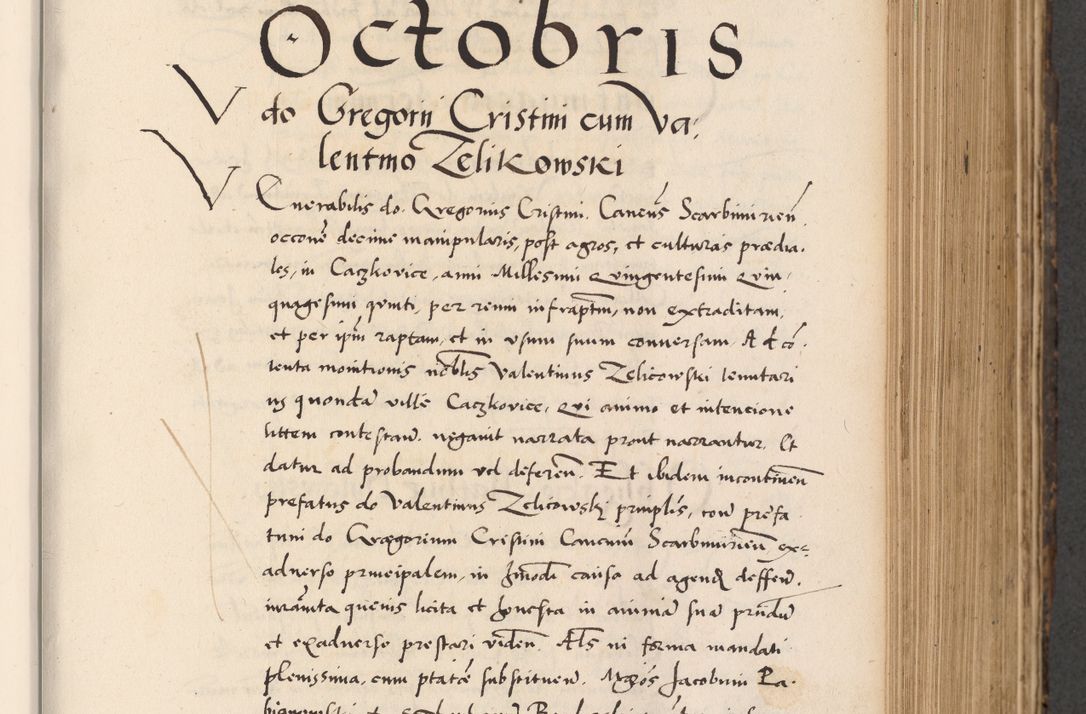 Octobris
do Gregorij Cristini cum Va,
lentino Zelikowski
Venerabilis do. Gregorius Cristini. Caneūs Scarbimirieñ
occoně decime manipularis, post agros, et culturas prædia.
les, in Caczkovice, anni Millesimi Quingentesimi Quin,
quagesimi quinti, per reum infraptm, non extraditam,
et per ipm raptam, et in usum suum conversam. Ad có.
tenta monitionis nobilis Valentinus Zelicowski tenutari
us quondā ville Caczkovice, Qui animo et intencione
littem contestand. negavit narrata prout narrantur. Et
datur ad probandum vel deferen. Et ibidem incontinen
prefatus do Valentinus Zelicowski prinplis, con prefa
tum do Grægorium Cristini Caneum Scarbimirien, ex=
adverso principalem, in hmodi causa ad agend deffen.
iuramta quevis licita et honesta in animā suā prstdū
et exadverso prestari viden. Als in forma mandati
plenissima, cum ptate substituen. Mgros Jacobum Ra.